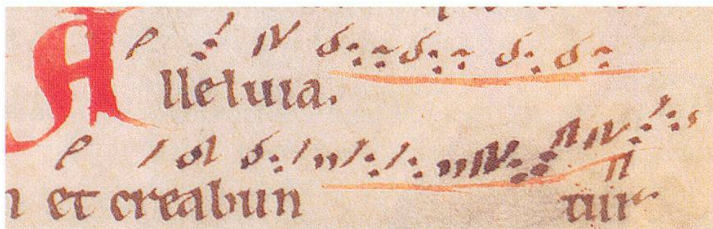 Alleluia.
et creabun tur